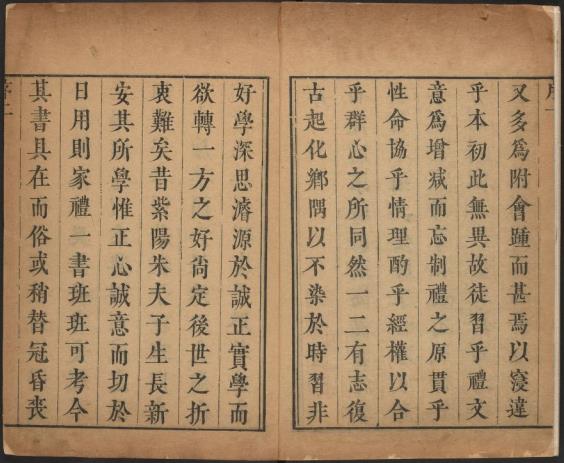 又多爲附會踵而甚焉以寖違
乎本初此無異故徒習乎禮文
意爲增减而忘制禮之原貫乎
性命協乎情理酌乎經權以合
乎群心之所同然一二有志復
古起化鄉隅以不染於時習非
好學深思濬源於誠正實學而
欲轉一方之好尚定後世之折
衷難矣昔紫陽朱夫子生長新
安其所學惟正心誠意而切於
日用則家禮一書班班可考今
其書具在而俗或稍替冠昏喪